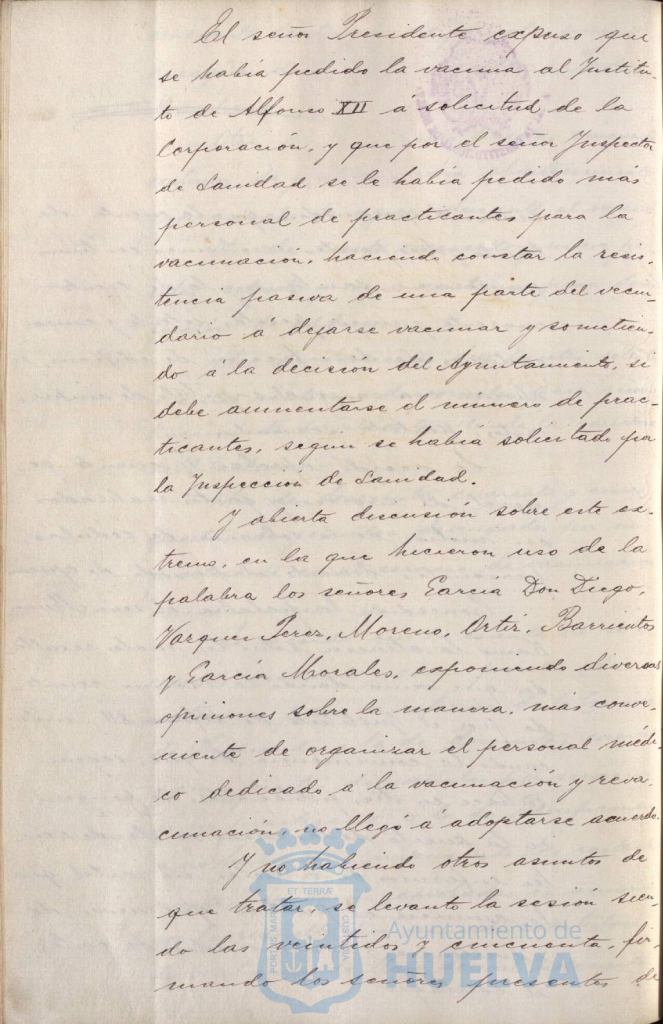 El señor Presidente expuso que
se había pedido la vacuna al Institu-
to de Alfonso XII á solicitud de la
Corporación, y que por el señor Inspector
de Sanidad se le había pedido más
personal de practicantes para la
vacunación, haciendo constar la resis-
tencia pasiva de una parte del vecin-
dario á dejarse vacunar y sometien-
do á la decisión del Ayuntamiento, si
debe aumentarse el número de prac-
ticantes, según se había solicitado por
la Inspección de Sanidad.
Y abierta discusión sobre este ex-
tremo, en la que hicieron uso de la
palabra los señores García Don Diego,
Vazquez Perez, Moreno, Ortiz, Barrientos
y García Morales, exponiendo diversas
opiniones sobre la manera, más conve-
niente de organizar el personal médi-
co dedicado á la vacunación y reva-
cunación, no llegó á adoptarse acuerdo.
Y no habiendo otros asuntos de
que tratar, se levanto la sesión sien-
do las veintidos y cincuenta, fir-
mando los señores presentes de
Ayuntamiento de
HUELVA